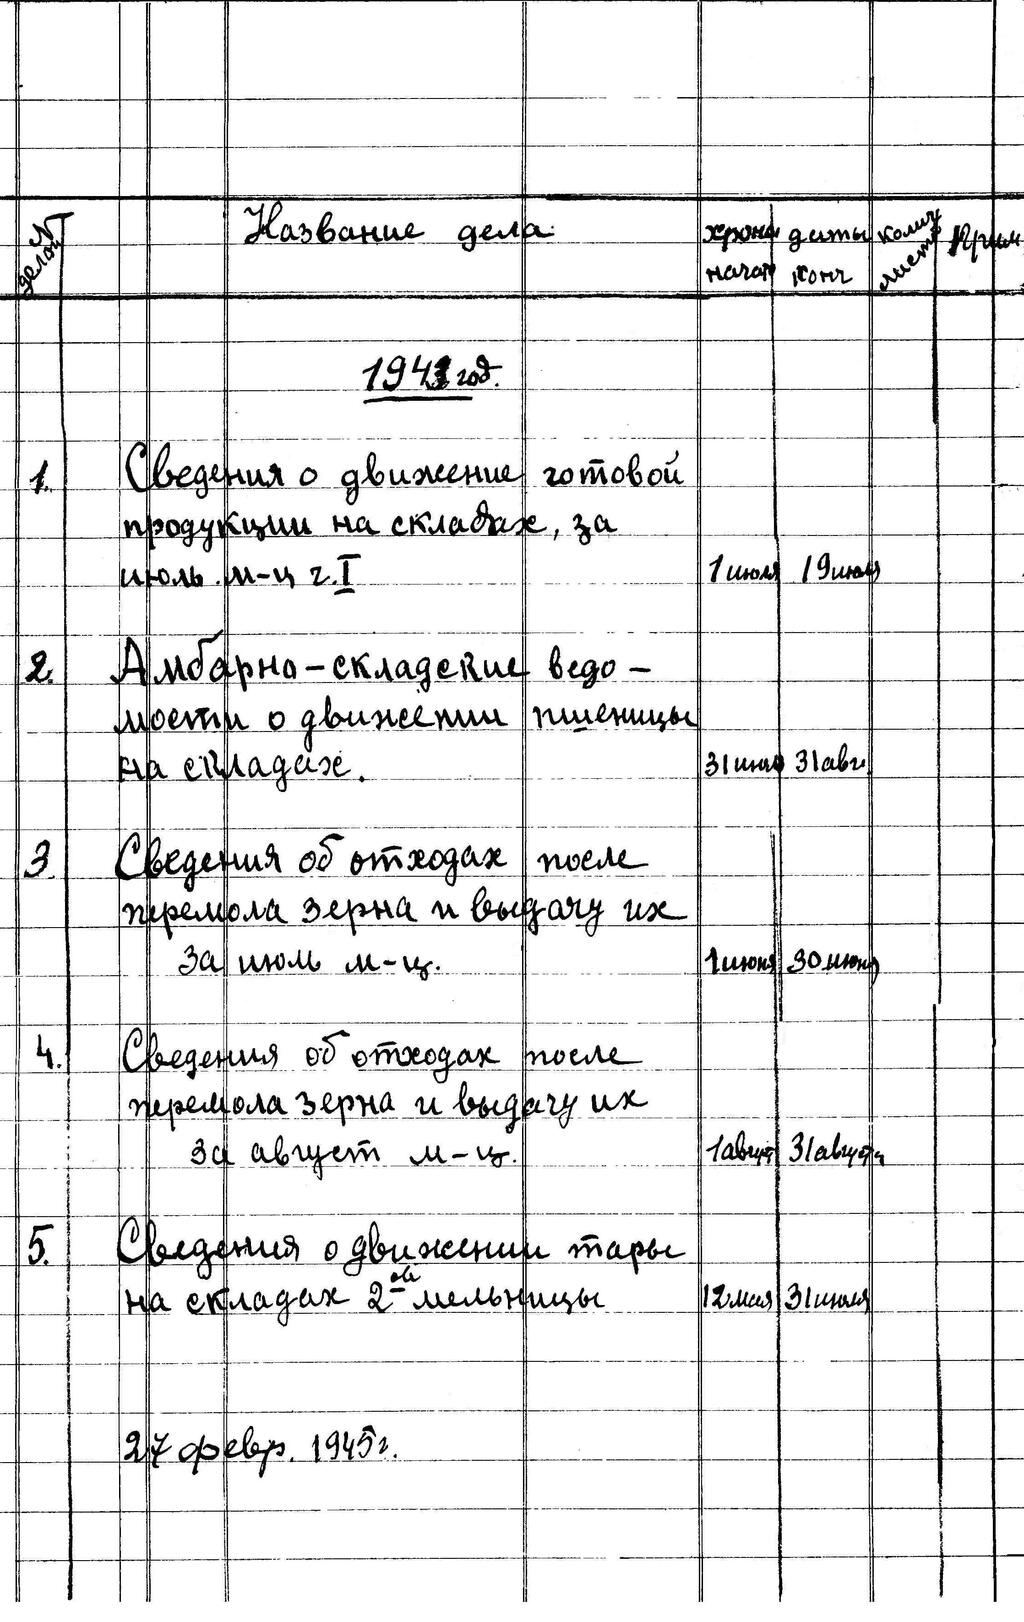 № делов Название дела хрон. даты колич. листов Прим
начат конч
1943 год.
1. Сведения о движение готовой
продукции на складах, за
июль м-ц г. I 1 июля 19 июля
2. Амбарно-складские ведо-
мости о движении пшеницы
на складах. 31 июля 31 авг.
3 Сведения об отходах после
перемола зерна и выдачу их
за июль м-ц. 1 июня 30 июня
4. Сведения об отходах после
перемола зерна и выдачу их
за август м-ц. 1 август 31 августа
5. Сведения о движении тары
на складах 2-ой мельницы 12 мая 31 июля
27 февр. 1945 г.